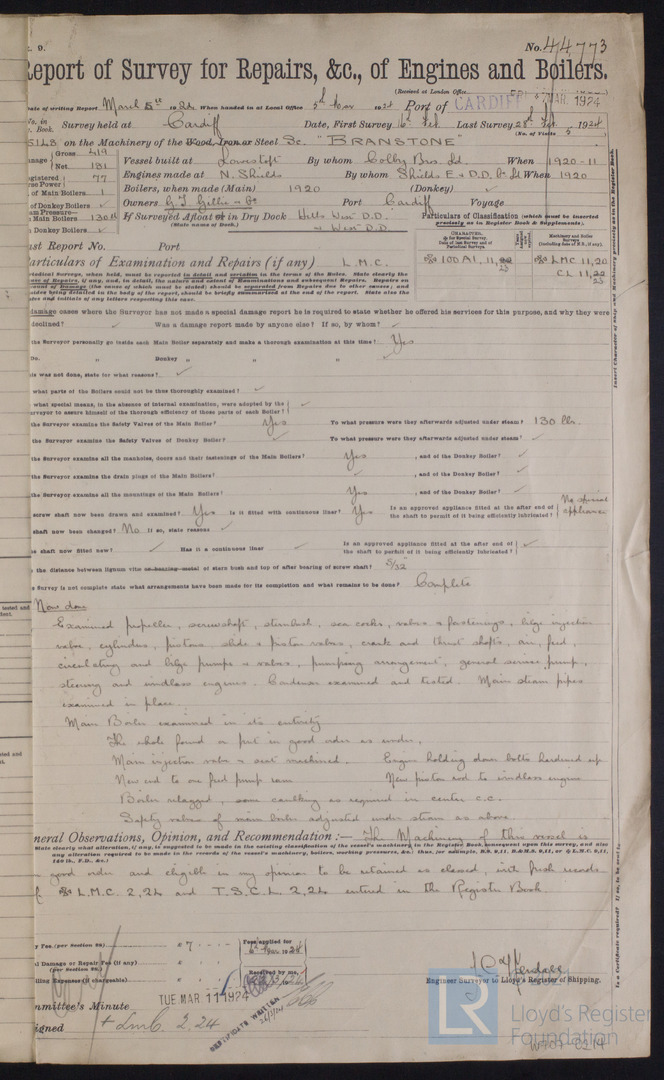 No. 44773
Report of Survey for Repairs, &c., of Engines and Boilers.
(Received at London Office
MAR. 1924
Date of writing Report March 5th 1924 When handed in at Local Office 5th Mar 1924 Port of CARDIFF
No. in Survey held at Cardiff Date, First Survey 16th Feb Last Survey 28th Feb 1924
Book. (No. of Visits 5)
on the Machinery of the Wood, Iron or Steel Sc. "BRANSTONE"
Gross 419
Net 131
Vessel built at Lowestoft By whom Colby Bros. Ld. When 1920-11
Registered 77
Horse Power
Engines made at N. Shields By whom Shields E & D.D. Co Ld When 1920
of Main Boilers 1
Boilers, when made (Main) 1920 (Donkey) ✓
of Donkey Boilers ✓
Owners G. T. Gillie & Co Port Cardiff Voyage
Steam Pressure—
Main Boilers 130 lb
If Surveyed Afloat or in Dry Dock Hills West D.D.
(State name of Dock.) & West D.D.
Donkey Boilers ✓
Particulars of Classification (which must be inserted
precisely as in Register Book & Supplements).
Last Report No. Port
CHARACTER.
100A1. 11,22 LMC 11,20
23 CL 11,22
23
Particulars of Examination and Repairs (if any) L.M.C.
Periodical Surveys, when held, must be reported in detail and seriatim in the terms of the Rules. State clearly the
cause of Repairs, if any, and, in detail, the nature and extent of Examinations and subsequent Repairs. Repairs on
account of Damage (the cause of which must be stated) should be separated from Repairs due to other causes; and
besides being detailed in the body of the report, should be briefly summarized at the end of the report. State also the
dates and initials of any letters respecting this case.
damage cases where the Surveyor has not made a special damage report he is required to state whether he offered his services for this purpose, and why they
declined? ✓ Was a damage report made by anyone else? If so, by whom? ✓
the Surveyor personally go inside each Main Boiler separately and make a thorough examination at this time? Yes
Do. " Donkey " " " ✓
this was not done, state for what reasons? ✓
what parts of the Boilers could not be thus thoroughly examined? ✓
what special means, in the absence of internal examination, were adopted by the
Surveyor to assure himself of the thorough efficiency of those parts of each Boiler? ✓
the Surveyor examine the Safety Valves of the Main Boiler? Yes To what pressure were they afterwards adjusted under steam? 130 lbs.
the Surveyor examine the Safety Valves of Donkey Boiler? ✓ To what pressure were they afterwards adjusted under steam? ✓
the Surveyor examine all the manholes, doors and their fastenings of the Main Boilers? Yes , and of the Donkey Boiler? ✓
the Surveyor examine the drain plugs of the Main Boilers? ✓ , and of the Donkey Boiler? ✓
the Surveyor examine all the mountings of the Main Boilers? Yes , and of the Donkey Boiler? ✓
screw shaft now been drawn and examined? Yes Is it fitted with continuous liner? Yes Is an approved appliance fitted at the after end of
the shaft to permit of it being efficiently lubricated? No special appliance
shaft now been changed? No If so, state reasons ✓
the shaft now fitted new? ✓ Has it a continuous liner ✓ Is an approved appliance fitted at the after end of
the shaft to permit of it being efficiently lubricated? ✓
the distance between lignum vitæ or bearing metal of stern bush and top of after bearing of screw shaft? 5/32"
Survey is not complete state what arrangements have been made for its completion and what remains to be done? Complete
Now done
Examined propeller, screwshaft, sternbush, sea cocks, valves & fastenings, bilge injection
valve, cylinders, pistons, slide & piston valves, crank and thrust shafts, air, feed,
circulating and bilge pumps & valves, pumping arrangement, general service pump,
steering and windlass engines. Condenser examined and tested. Main steam pipes
examined in place.
Main Boiler examined in its entirety
The whole found or put in good order as under.
Main injection valve & seat machined. Engine holding down bolts hardened up
New end to one feed pump ram New piston rod to windlass engine
Boiler relagged, some caulking as required in center c.c.
Safety valves of main boiler adjusted under steam as above
General Observations, Opinion, and Recommendation:— The Machinery of this vessel is
State clearly what alteration, if any, is suggested to be made in the existing classification of the vessel's machinery in the Register Book consequent upon this survey, and also
any alteration required to be made in the records of the vessel's machinery, boilers, working pressures, &c.; thus, for example,
good order and eligible in my opinion to be retained as classed, with fresh records
of L.M.C. 2,24 and T.S.C.L. 2,24 entered in the Register Book.
Fee (per Section 28) £ 7
Fees applied for
6th Mar 1924
Damage or Repair Fee (if any) £
(per Section 28)
Received by me,
Travelling Expenses (if chargeable) £
Engineer Surveyor to Lloyd's Register of Shipping.
Committee's Minute TUE. MAR. 11 1924
CERTIFICATE WRITTEN
Assigned + LMC 2.24
LR
Lloyd's Register
Foundation
Insert Character of Ship and Machinery precisely as in the Register Book.
Is a Certificate required? If so, to be sent to